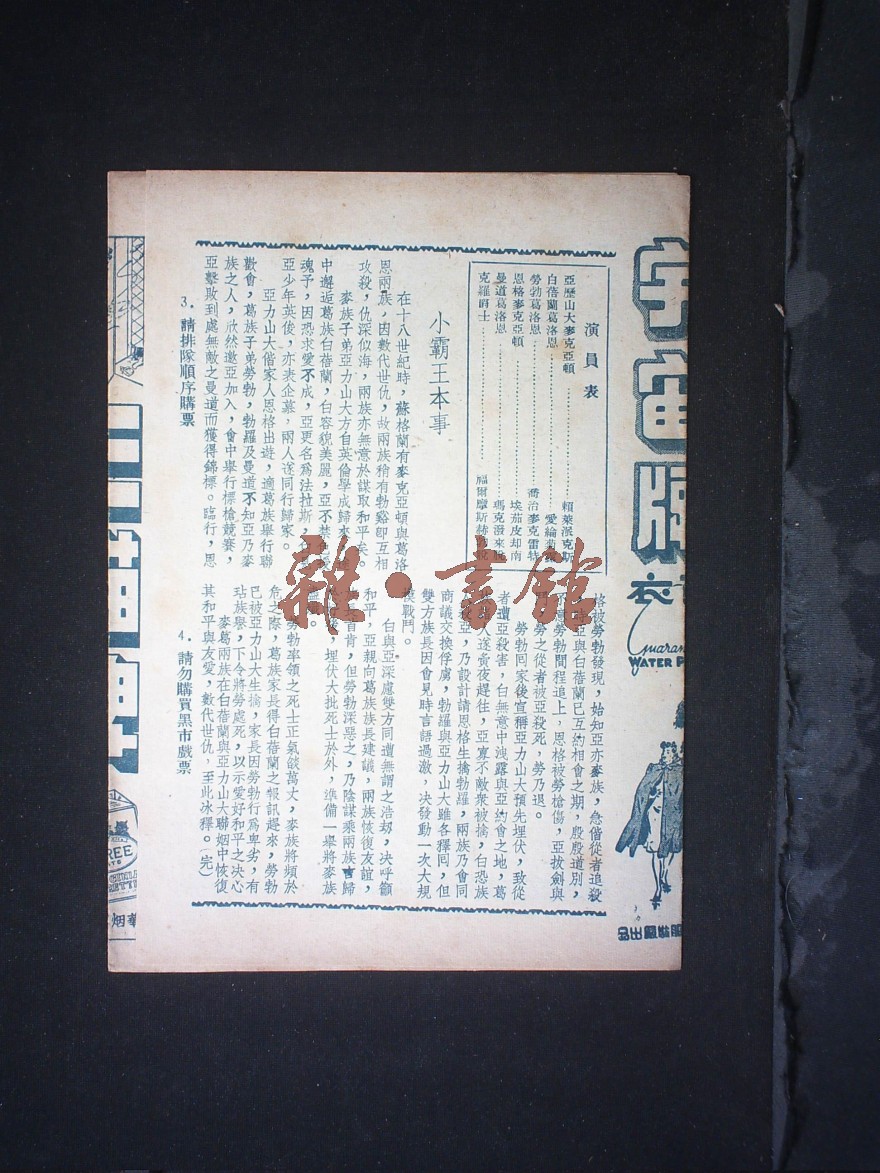 宇宙牌
雨衣
Guaran
WATER P
演員表
亞歷山大麥克亞頓………賴萊派克斯
白蓓蘭葛洛恩………愛綸菊
勞勃葛洛恩………喬治麥克雷特
恩格麥克亞頓………埃茄皮却南
曼道葛洛恩………瑪克潑來
克羅爵士………福爾摩斯赫
小霸王本事
在十八世紀時，蘇格蘭有麥克亞頓與葛洛
恩兩族，因數代世仇，故兩族稍有勃谿卽互相
攻殺，仇深似海，兩族亦無意於謀取和平矣。
麥族子弟亞力山大方自英倫學成歸
中邂逅葛族白蓓蘭，白容貌美麗，亞不禁
魂予，因恐求愛不成，亞更名為法拉斯，
亞少年英俊，亦表企慕，兩人遂同行歸家。
亞力山大偕家人恩格出遊，適葛族舉行聯
歡會，葛族子弟勞勃，勃羅及曼道不知亞乃麥
族之人，欣然邀亞加入，會中舉行標槍競賽，
亞擊敗到處無敵之曼道而獲得錦標。臨行，恩
格被勞勃發現，始知亞亦麥族，急偕從者追殺
亞與白蓓蘭已互約相會之期，殷殷道別，
勞勃間程追上，恩格被勞槍傷，亞拔劍與
勞之從者被亞殺死，勞乃退。
勞勃囘家後宣稱亞力山大預先埋伏，致從
者遭亞殺害，白無意中洩露與亞約會之地，葛
人遂夤夜趕往，亞寡不敵衆被擒，白恐族
亞，乃設計請恩格生擒勃羅，兩族乃會同
商議交換俘虜，勃羅與亞力山大雖各釋囘，但
雙方族長因會見時言語過激，決發動一次大規
模戰鬥。
白與亞深慮雙方同遭無謂之浩刼，決呼籲
和平，亞親向葛族族長建議，兩族恢復友誼，
首肯，但勞勃深惡之，乃陰謀乘兩族言歸
，埋伏大批死士於外，準備一舉將麥族
。
勞勃率領之死士正氣燄萬丈，麥族將頻於
危之際，葛族家長得白蓓蘭之報訊趕來，勞勃
已被亞力山大生擒，家長因勞勃行爲卑劣，有
玷族譽，下令將勞處死，以示愛好和平之決心
麥葛兩族在白蓓蘭與亞力山大聯姻中恢復
其和平與友愛，數代世仇，至此冰釋。（完）
3．請排隊順序購票
4．請勿購買黑市戲票
雜·書館